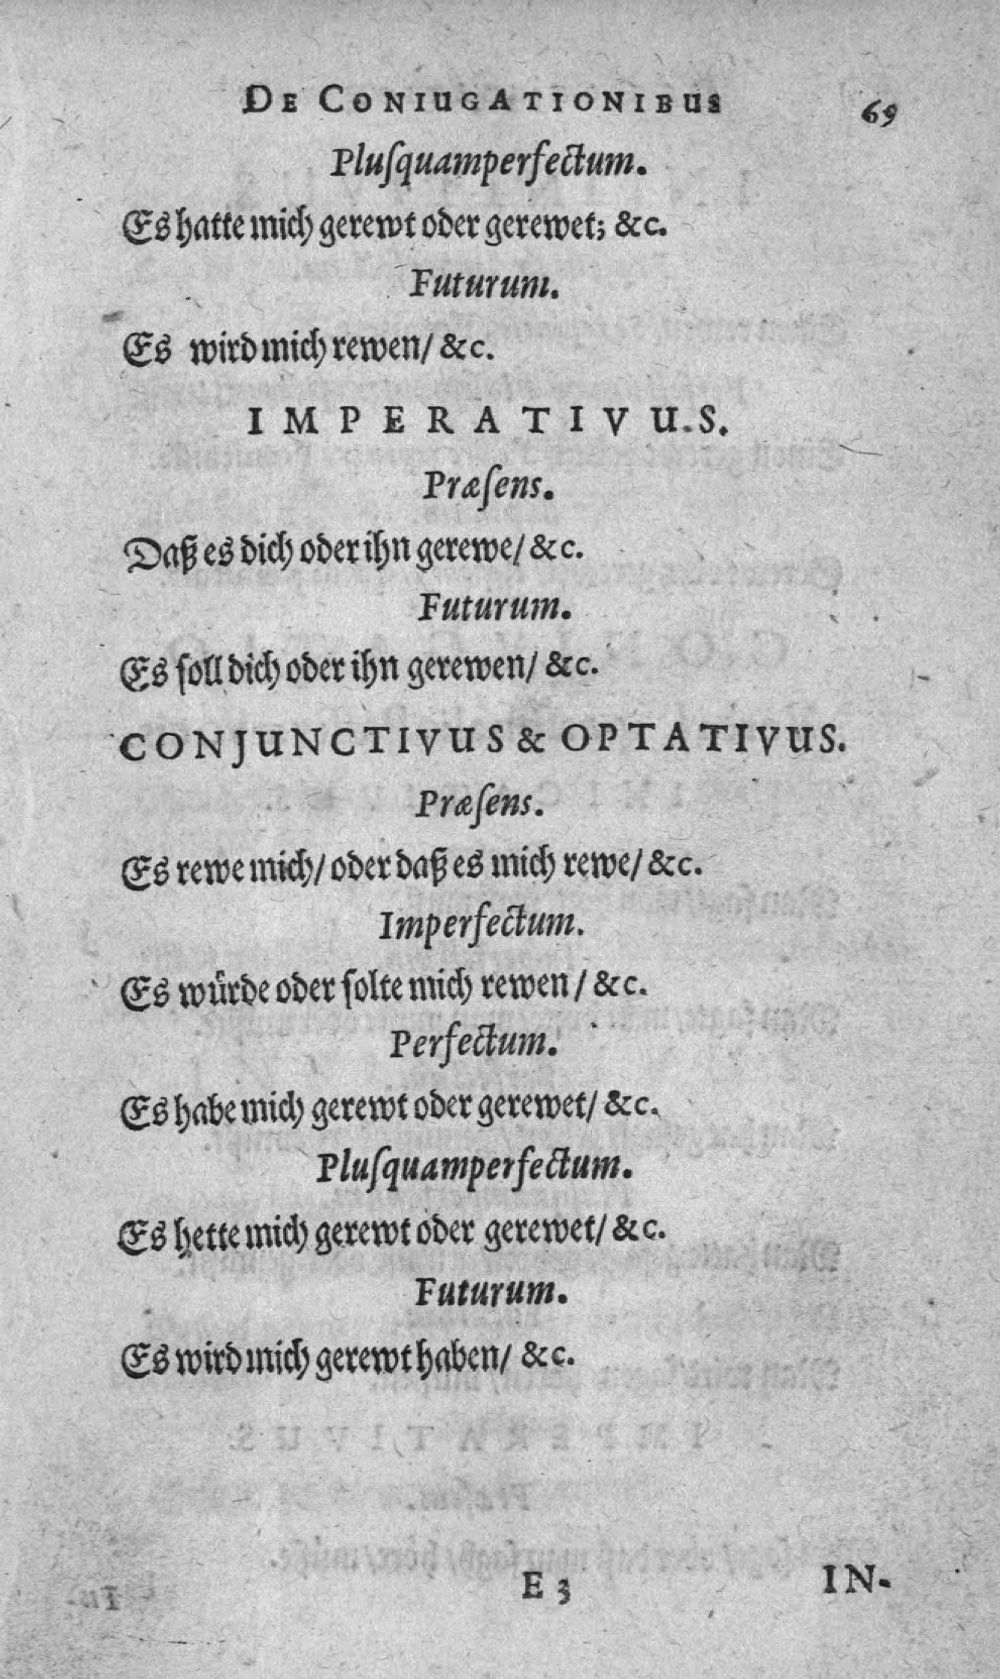 DE CONIUGATIONIBUS 69
Pluſquamperfectum.
Es hatte mich gerewt oder gerewet; &c.
Futurum.
Es wird mich rewen/ &c.
IMPERATIVU.S.
Præſens.
Daß es dich oder ihn gerewe/ &c.
Futurum.
Es ſoll dich oder ihn gerewen/ &c.
CONJUNCTIVUS & OPTATIVUS.
Præſens.
Es rewe mich/ oder daß es mich rewe/ &c.
Imperfectum.
Es wuͤrde oder ſolte mich rewen / &c.
Perfectum.
Es habe mich gerewt oder gerewet/ &c.
Pluſquamperfectum.
Es hette mich gerewt oder gerewet/ &c.
Futurum.
Es wird mich gerewt haben/ &c.
E 3 IN-